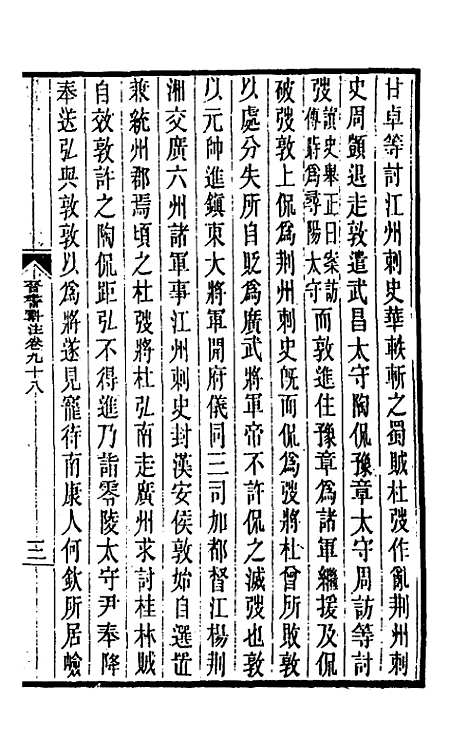 甘卓等討江州刺史華軼斬之蜀賊杜弢作亂荆州刺
史周顗退走敦遣武昌太守陶侃豫章太守周訪等討
弢讀史舉正曰案訪傳時爲尋陽太守而敦進住豫章爲諸軍繼援及侃
破弢敦上侃爲荆州刺史旣而侃爲弢將杜曾所敗敦
以處分失所自貶爲廣武將軍帝不許侃之滅弢也敦
以元帥進鎮東大將軍開府儀同三司加都督江楊荆
湘交廣六州諸軍事江州刺史封漢安侯敦始自選置
兼統州郡焉頃之杜弢將杜弘南走廣州求討桂林賊
自效敦許之陶侃距弘不得進乃詣零陵太守尹奉降
奉送弘與敦敦以爲將遂見寵待南康人何欽所居嶮
晉書斠注卷九十八
三